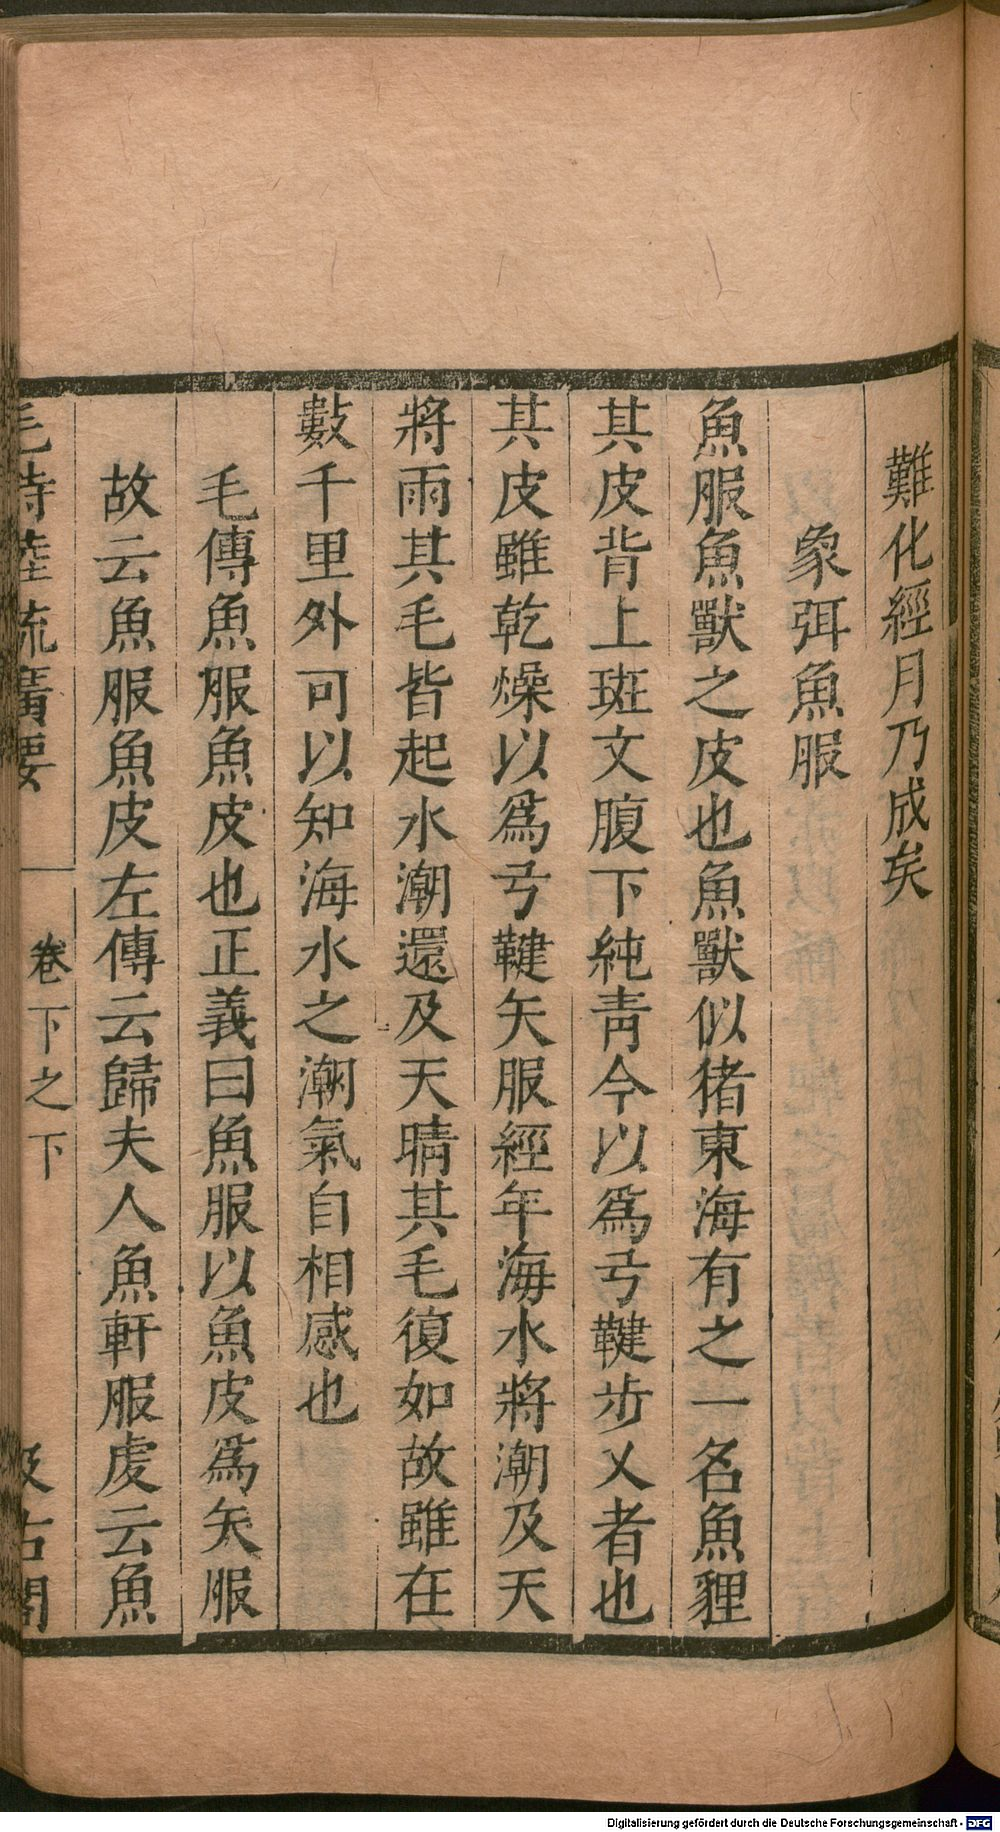 難化經月乃成矣
象弭魚服
魚服魚獸之皮也魚獸似猪東海有之一名魚貍
其皮背上斑文腹下純青今以爲弓鞬步乂者也
其皮雖乾燥以爲弓鞬矢服經年海水將潮及天
將雨其毛皆起水潮還及天晴其毛復如故雖在
數千里外可以知海水之潮氣自相感也
毛傳魚服魚皮也正義曰魚服以魚皮爲矢服
故云魚服魚皮左傳云歸夫人魚軒服虔云魚
毛詩陸疏廣要 卷下之下 汲古閣
Digitalisierung gefördert durch die Deutsche Forschungsgemeinschaft - DFG